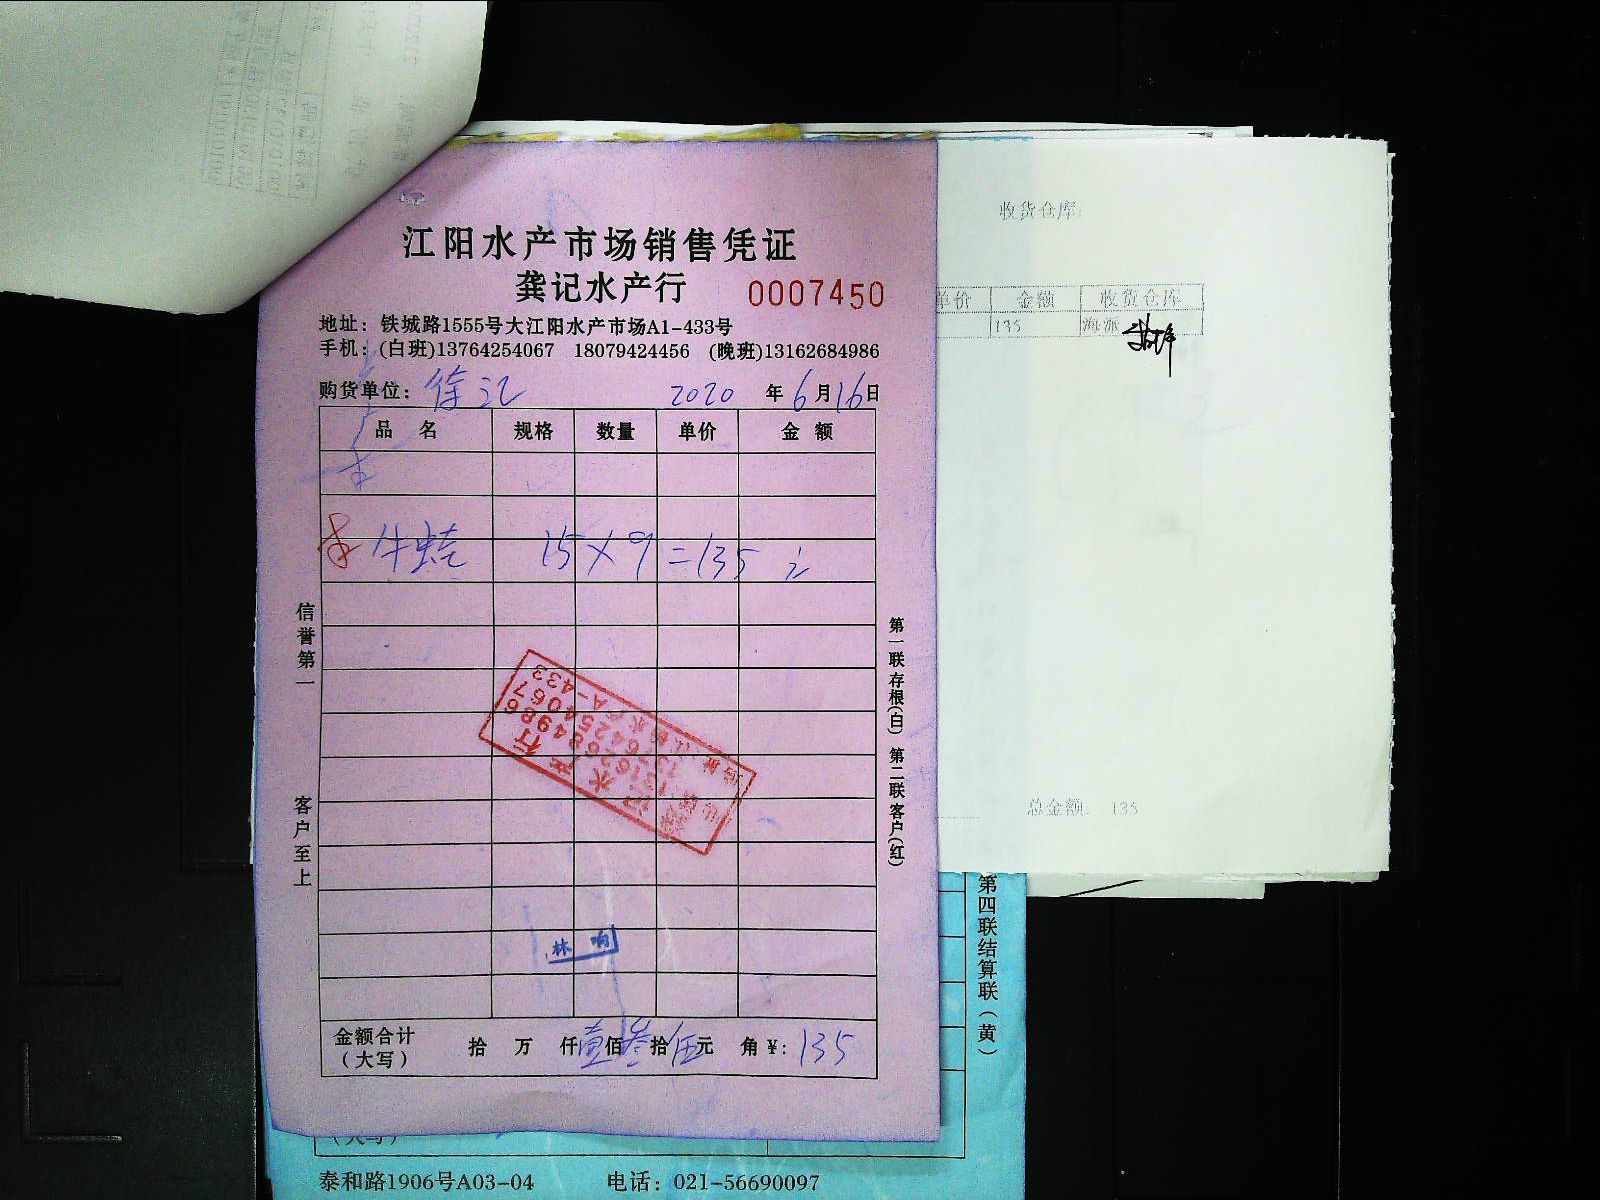 江阳水产市场销售凭证
龚记水产行 0007450
地址：铁城路1555号大江阳水产市场A1-433号
手机：(白班)13764254067 18079424456 (晚班)13162684986
购货单位：徐记 2020 年 6 月 16 日
品 名 规格 数量 单价 金 额
牛蛙 15×9=135
信誉第一
客户至上
第一联存根(白) 第二联客户(红)
林 响
金额合计
(大写) 拾 万 仟壹佰叁拾伍元 角¥: 135
收货仓库:
单价 金额 收货仓库
135 海派
总金额: 135
第四联结算联(黄)
(大写)
泰和路1906号A03-04 电话：021-56690097